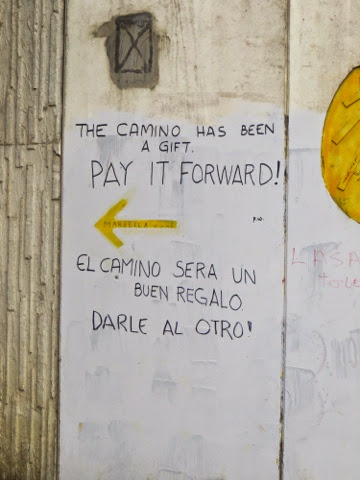 THE CAMINO HAS BEEN
A GIFT.
PAY IT FORWARD!
P.W.
EL CAMINO SERA UN
BUEN REGALO.
DARLE AL OTRO!
LASA